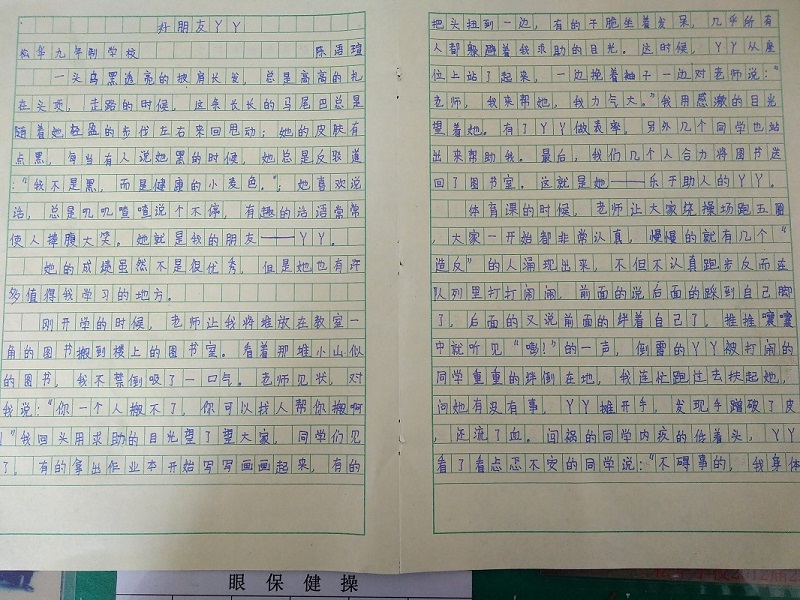 好朋友丫丫
松华九年制学校 陈语瑄
一头乌黑透亮的披肩长发，总是高高的扎
在头顶，走路的时候，这条长长的马尾巴总是
随着她轻盈的步伐左右来回甩动；她的皮肤有
点黑，每当有人说她黑的时候，她总是反驳道
：“我不是黑，而是健康的小麦色。”；她喜欢说
话，总是叽叽喳喳说个不停，有趣的话语常常
使人捧腹大笑。她就是我的朋友——丫丫。
她的成绩虽然不是很优秀，但是她也有许
多值得我学习的地方。
刚开学的时候，老师让我将堆放在教室一
角的图书搬到楼上的图书室。看着那堆小山似
的图书，我不禁倒吸了一口气。老师见状，对
我说：“你一个人搬不了，你可以找人帮你搬啊
！”我回头用求助的目光望了望大家，同学们见
了，有的拿出作业本开始写写画画起来，有的
把头扭到一边，有的干脆坐着发呆，几乎所有
人都躲避着我求助的目光。这时候，丫丫从座
位上站了起来，一边挽着袖子一边对老师说：“
老师，我来帮她，我力气大。”我用感激的目光
望着她。有了丫丫做表率，另外几个同学也站
出来帮助我。最后，我们几个人合力将图书送
回了图书室。这就是她——乐于助人的丫丫。
体育课的时候，老师让大家绕操场跑五圈
，大家一开始都非常认真，慢慢的就有几个“
造反”的人涌现出来，不但不认真跑步反而在
队列里打打闹闹，前面的说后面的踩到自己脚
了，后面的又说前面的绊着自己了，推推嚷嚷
中就听见“嘭！”的一声，倒霉的丫丫被打闹的
同学重重的绊倒在地，我连忙跑过去扶起她，
问她有没有事，丫丫摊开手，发现手蹭破了皮
，还流了血。闯祸的同学内疚的低着头，丫丫
看了看忐忑不安的同学说：“不碍事的，我身体
眼保健操